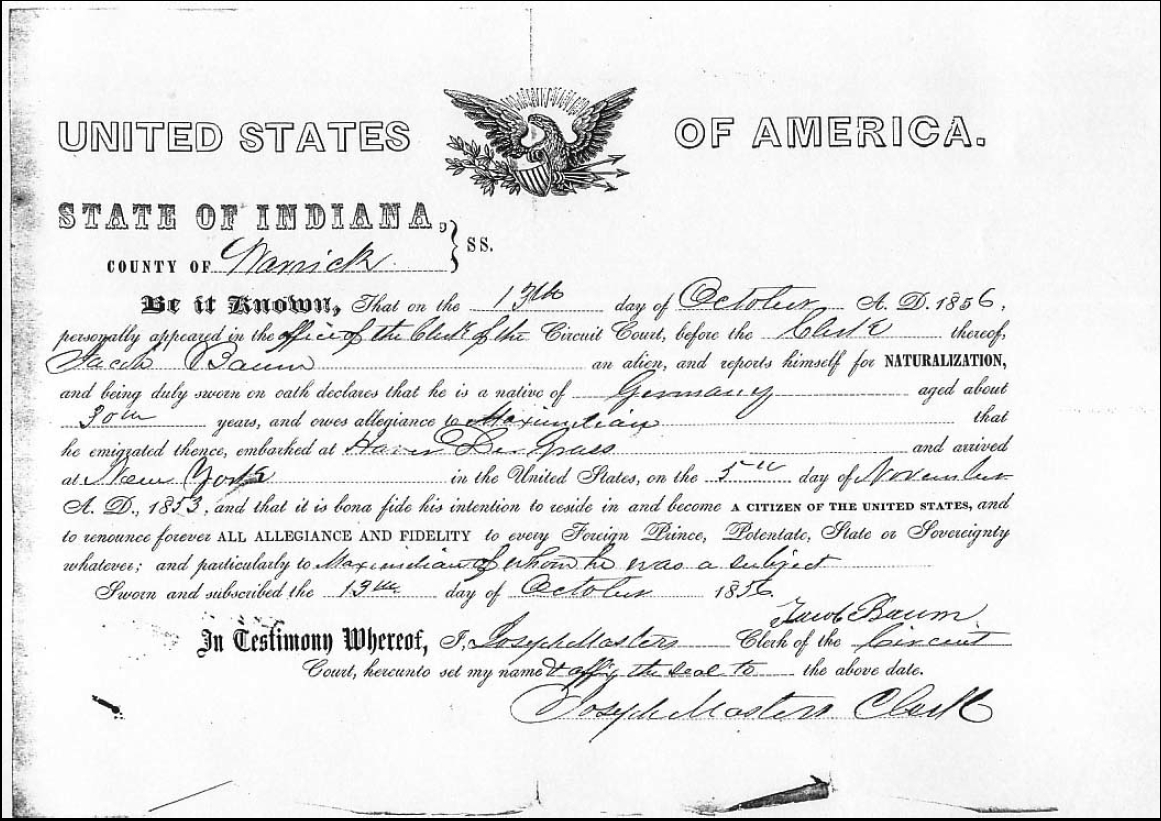 UNITED STATES OF AMERICA.
STATE OF INDIANA, } SS.
COUNTY OF Warrick
Be it Known, That on the 13th day of October A. D. 1856,
personally appeared in the office of the Clerk of the Circuit Court, before the Clerk thereof,
Jacob Baum an alien, and reports himself for NATURALIZATION,
and being duly sworn on oath declares that he is a native of Germany aged about
30 years, and owes allegiance to Maximilian that
he emigrated thence, embarked at Haver and arrived
at New York in the United States, on the 5th day of November
A. D., 1853, and that it is bona fide his intention to reside in and become A CITIZEN OF THE UNITED STATES, and
to renounce forever ALL ALLEGIANCE AND FIDELITY to every Foreign Prince, Potentate, State or Sovereignty
whatever; and particularly to Maximilian of whom he was a subject
Sworn and subscribed the 13th day of October 1856.
Jacob Baum
In Testimony Whereof, I, Joseph Masters Clerk of the Circuit
Court, hereunto set my name & affix the seal to the above date.
Joseph Masters Clerk